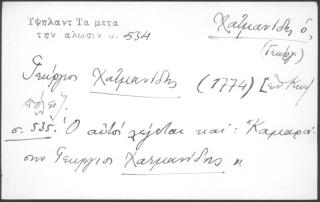 Υψηλαντ Τα μετα
την αλωσιν σ. 534
Χατμανίδης ὁ,
(Γεώργ.)
Γεώργιος Χατμανίδης (1774)
σ. 535. Ὁ αὐτὸς λέγεται καὶ: "Καμαρά-
σης Γεώργιος Χατμανίδης "